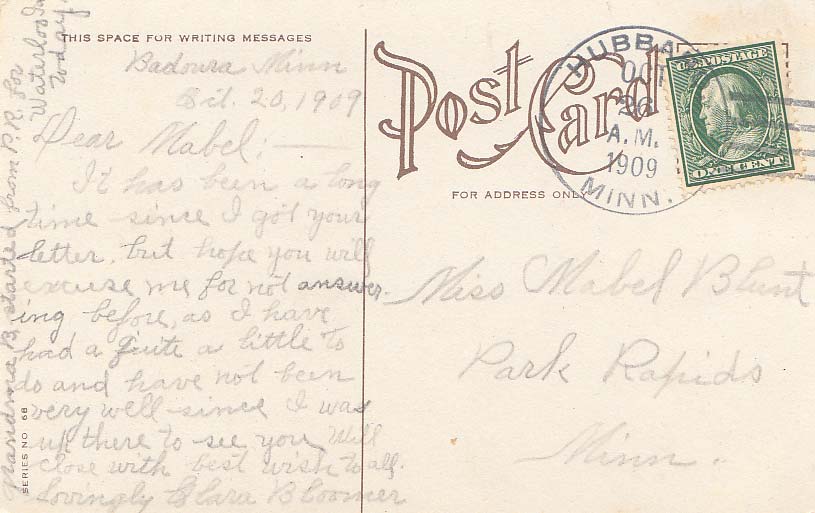 THIS SPACE FOR WRITING MESSAGES
Badoura Minn
Oct. 20, 1909
Dear Mabel:—
It has been a long
time since I got your
letter, but hope you will
excuse me for not answer-
ing before, as I have
had a quite a little to
do and have not been
very well since I was
up there to see you. Will
close with best wish to all.
Lovingly Clara Bloomer
Grandma B. started from P.R. for
Waterloo Ia
today.
SERIES NO 68
Post Card
FOR ADDRESS ONLY
HUBBARD
OCT
26
A.M.
1909
MINN.
U.S. POSTAGE
ONE CENT
Miss Mabel Blunt
Park Rapids
Minn.